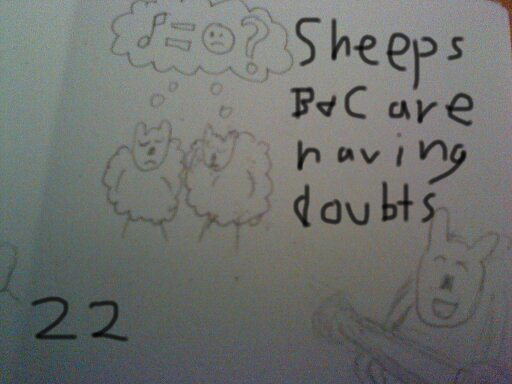 Sheeps
B&C are
having
doubts
22